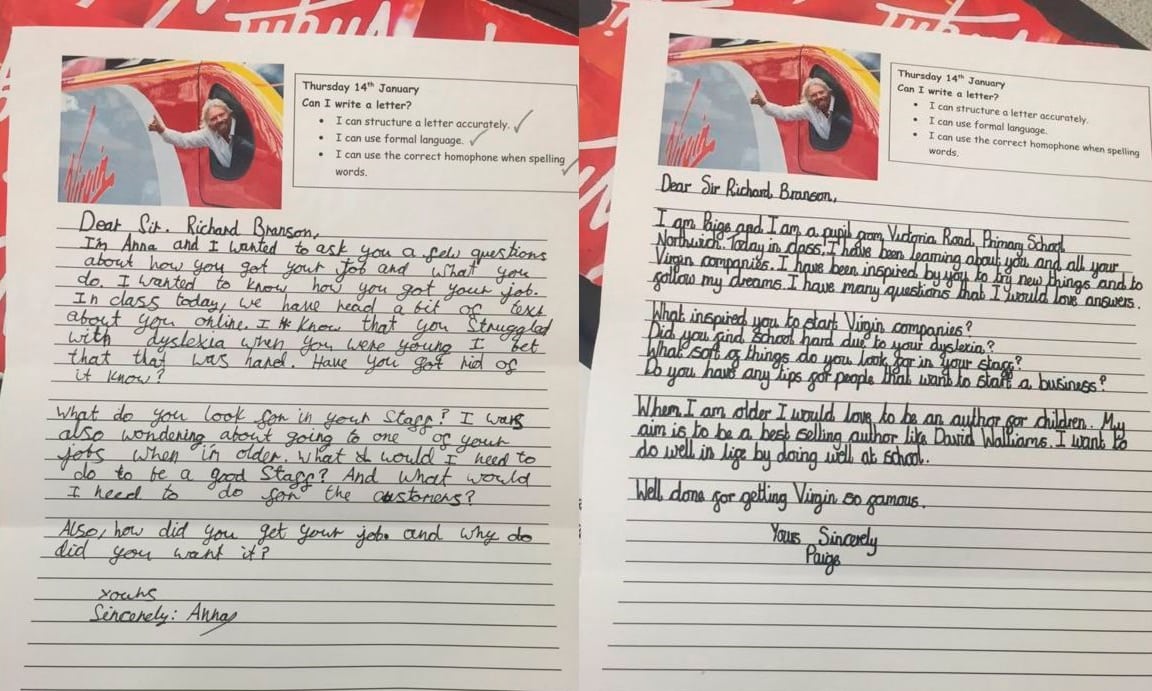 Virgin
Thursday 14th January
Can I write a letter?
• I can structure a letter accurately.
• I can use formal language.
• I can use the correct homophone when spelling
words.
Dear Sir. Richard Branson,
I'm Anna and I wanted to ask you a few questions
about how you got your Job and what you
do. I wanted to know how you got your job.
In class today, we have read a bit of text
about you online. I know that you Struggled
with dyslexia when you were young I bet
that that was hard. Have you got rid of
it know?
What do you look for in your Staff? I was
also wondering about going to one of your
jobs when im older. What would I need to
do to be a good Staff? And what would
I need to do for the customers?
Also, how did you get your job. and why do
did you want it?
yours
Sincerely: Anna
Virgin
Thursday 14th January
Can I write a letter?
• I can structure a letter accurately.
• I can use formal language.
• I can use the correct homophone when spelling
words.
Dear Sir Richard Branson,
I am Paige and I am a pupil from Victoria Road Primary School
Northwich. Today in class, I have been learning about you and all your
Virgin companies. I have been inspired by you to try new things and to
follow my dreams. I have many questions that I would love answers.
What inspired you to start Virgin companies?
Did you find school hard due to your dyslexia?
What sort of things do you look for in your staff?
Do you have any tips for people that want to start a business?
When I am older I would love to be an author for children. My
aim is to be a best selling author like David Walliams. I want to
do well in life by doing well at school.
Well done for getting Virgin so famous.
Yours Sincerely
Paige